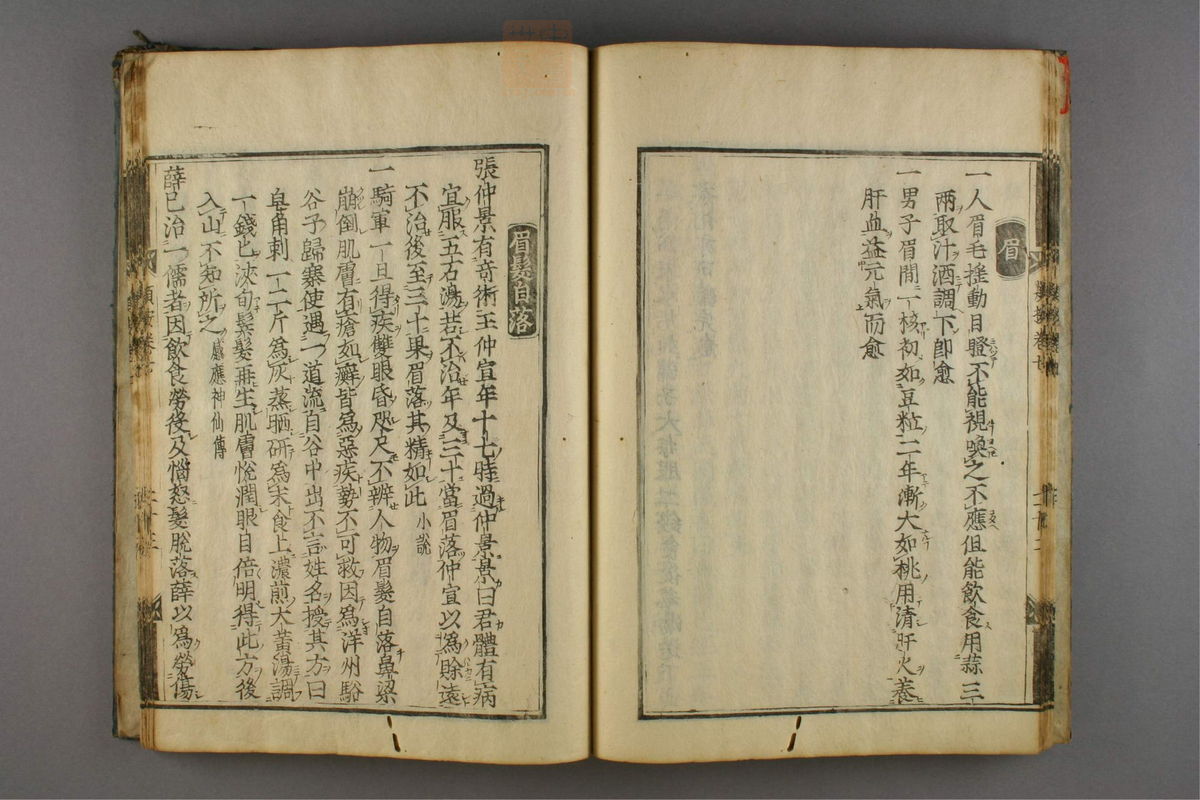 眉
一人眉毛揺動目瞪不能視喚之不應但能飲食用蒜三
兩取汁酒調下即愈
一男子眉間一核初如豆粒二年漸大如桃用清肝火養
肝血益元氣而愈
眉髮自落
張仲景有奇術王仲宣年十七時過仲景景曰君體有病
宜服五石湯若不治年及三十當眉落仲宣以爲賖遠
不治後至三十果眉落其精如此 小説
一騎軍一旦得疾雙眼昏咫尺不辨人物眉髮自落鼻梁
崩倒肌膚有瘡如癬皆爲惡疾勢不可救因爲洋州駱
谷子歸寨使遇一道流自谷中出不言姓名授其方曰
皀角刺一二斤爲灰蒸晒研爲末食上濃煎大黄湯調
一錢匕浹旬鬚髮再生肌膚悅潤眼目倍明得此方後
入山不知所之 感應神仙傳
薛已治一儒者因飲食勞役及惱怒髮脫落薛以爲勞傷